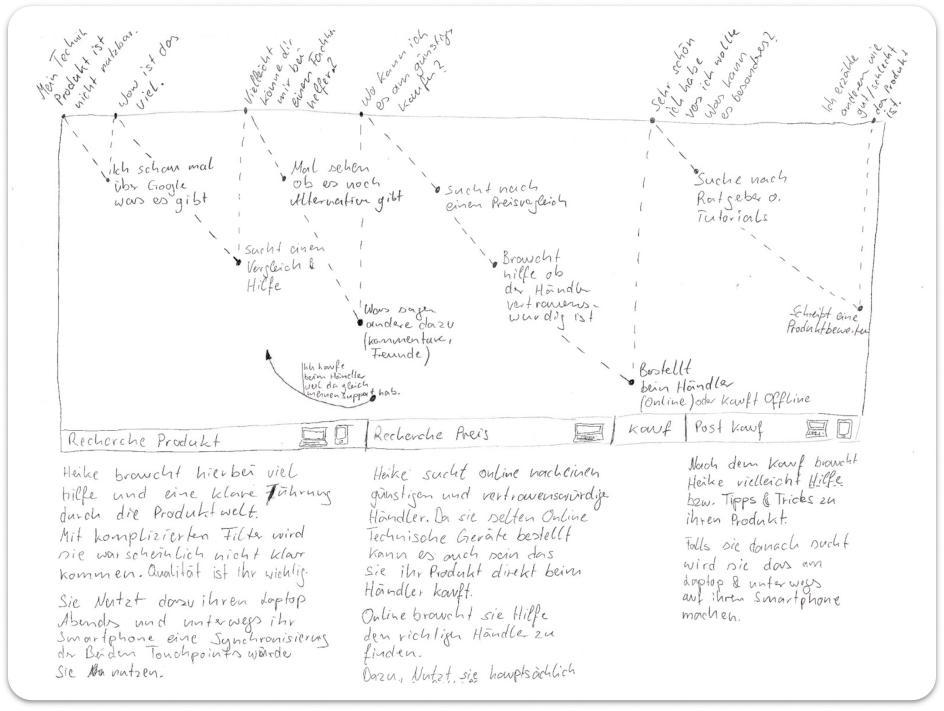 Mein Technik
Produkt ist
nicht nutzbar.
Wow ist das
viel.
Vielleicht
könnte dir
mir bei
einen Fachh.
helfen?
Wo kann ich
es am günstigs
kaufen?
Sehr schön
ich habe
was ich wollte
was kann
es besonderes?
Ich erzähle
anderen wie
gut/schlecht
das Produkt
ist.
Ich schau mal
über Google
was es gibt
Mal sehen
ob es noch
Alternativen gibt
Sucht nach
einen Preisvergleich
Suche nach
Ratgeber o.
Tutorials
Sucht einen
Vergleich &
Hilfe
Braucht
hilfe ob
der Händler
vertrauens-
würdig ist
Was sagen
andere dazu
(Kommentare,
Freunde)
Schreibt eine
Produktbewerten
Ich kaufe
beim Händler
weil da gleich
meinen Support hab.
Bestellt
beim Händler
(Online) oder kauft Offline
Recherche Produkt
Recherche Preis
Kauf
Post Kauf
Heike braucht hierbei viel
hilfe und eine klare Führung
durch die Produktwelt.
Mit komplizierten Filter wird
sie warscheinlich nicht klar
kommen. Qualität ist Ihr wichtig.
Sie Nutzt dazu ihren Laptop
Abends und unterwegs ihr
Smartphone eine Synchronisierung
der Beiden Touchpoints würde
Sie nutzen.
Heike sucht online nach einen
günstigen und vertrauenswürdige
Händler. Da sie selten Online
Technische Geräte bestellt
kann es auch sein das
sie ihr Produkt direkt beim
Händler kauft.
Online braucht sie Hilfe
den richtigen Händler zu
finden.
Dazu Nutzt sie hauptsächlich
Nach dem Kauf braucht
Heike vielleicht Hilfe
bzw. Tipps & Tricks zu
ihren Produkt.
Falls sie danach sucht
wird sie das am
Laptop & unterwegs
auf ihren Smartphone
machen.